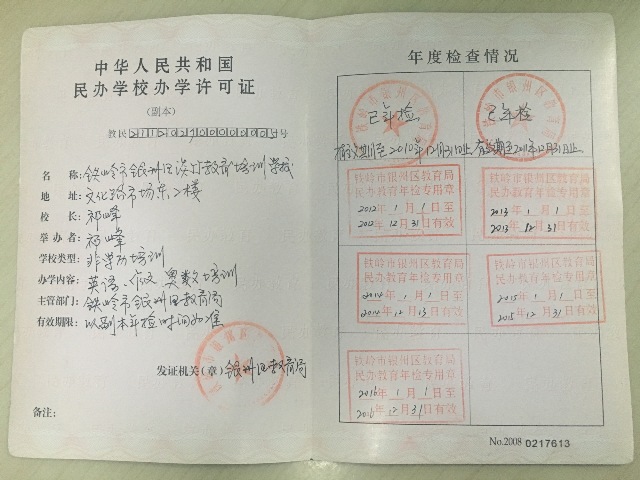 中华人民共和国
民办学校办学许可证
(副本)
教民
号
名 称: 铁岭市银州区 教育培训学校
地 址: 文化路市场东2楼
校 长: 祁峰
举 办 者: 祁峰
学校类型: 非学历培训
办学内容: 英语 作文 奥数培训
主管部门: 铁岭市银州区教育局
有效期限: 以副本年检时间为准
发证机关(章) 银州区教育局
备注:
年度检查情况
已年检
已年检
有效期至2010年12月31日止
有效期至2011年12月31日止
铁岭市银州区教育局
民办教育年检专用章
2012年 1月 1日至
2012年 12月31日有效
铁岭市银州区教育局
民办教育年检专用章
2013年 1月 1日至
2013年 12月31日有效
铁岭市银州区教育局
民办教育年检专用章
2014年 1月 1日至
2014年 12月13日有效
铁岭市银州区教育局
民办教育年检专用章
2015年 1月 1日至
2015年 12月31日有效
铁岭市银州区教育局
民办教育年检专用章
2016年 1月 1日至
2016年 12月31日有效
No.2008 0217613